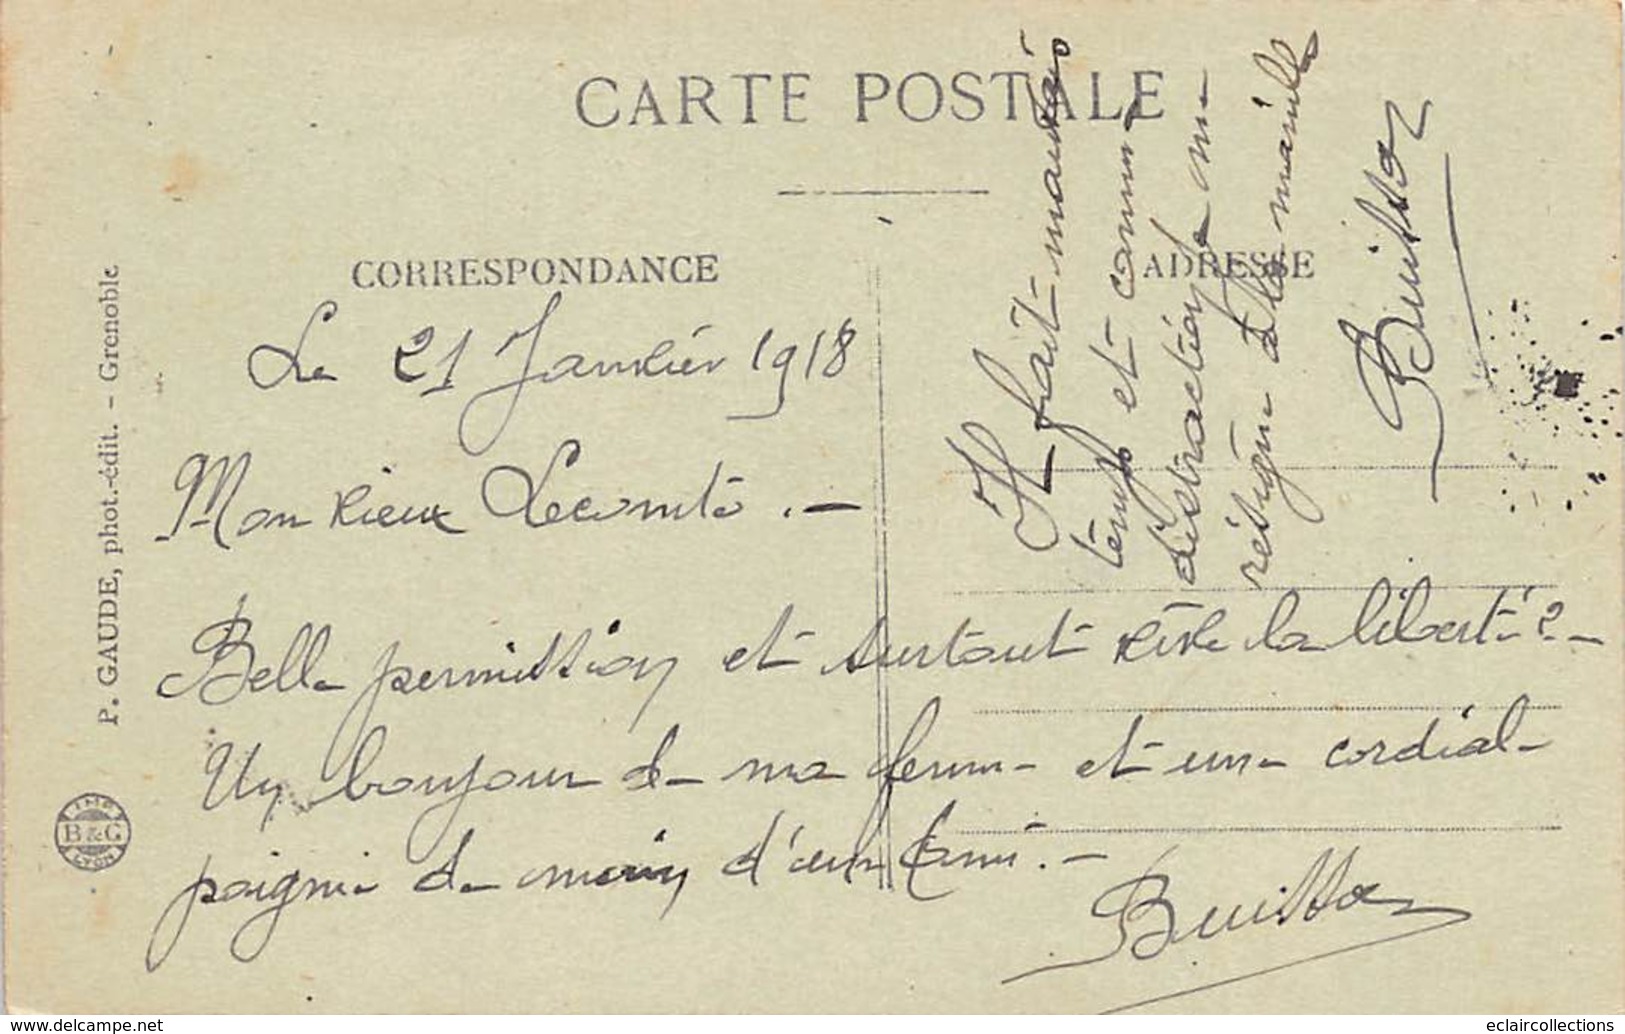 CARTE POSTALE
CORRESPONDANCE
ADRESSE
P. GAUDE, phot.-édit. - Grenoble
IMP.
B & G
LYON
Le 21 Janvier 1918
Mon vieux Lecomte . -
Belle permission et surtout vive la liberté ? -
Un bonjour de ma femme et une cordiale
poignée de main d'un ami. -
Buisson
Il fait mauvais
temps et comme
distraction je me
résigne à la manille
Buisson
www.delcampe.net
eclaircollections